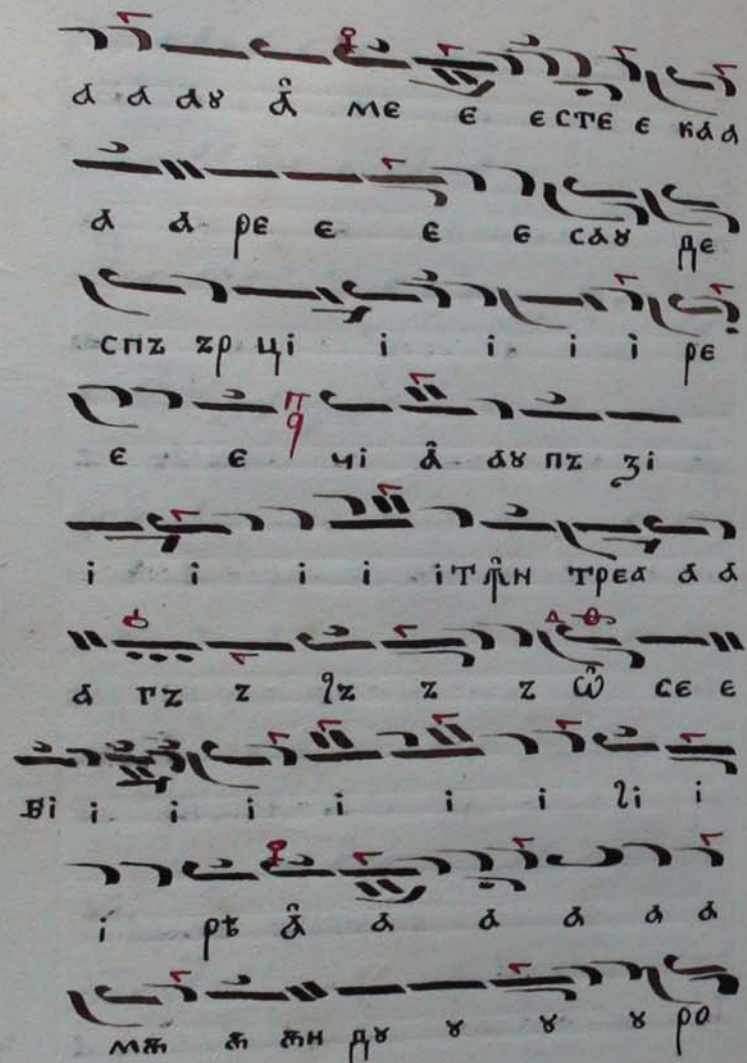 а а аꙋ а̑ ме е е сте е ка а
а а ре е е е саꙋ де
спъ ър ці і і і і ре
е е чі а̑ аꙋ пъ зі
і і і і іт ꙟ̑н треа а а
а гъ ъ лъ ъ ъ ѡ̑ се е
ві і і і і і і лі і
і рѣ а̑ а а а а а
мѫ ѫ ѫн дꙋ ꙋ ꙋ ꙋ ро